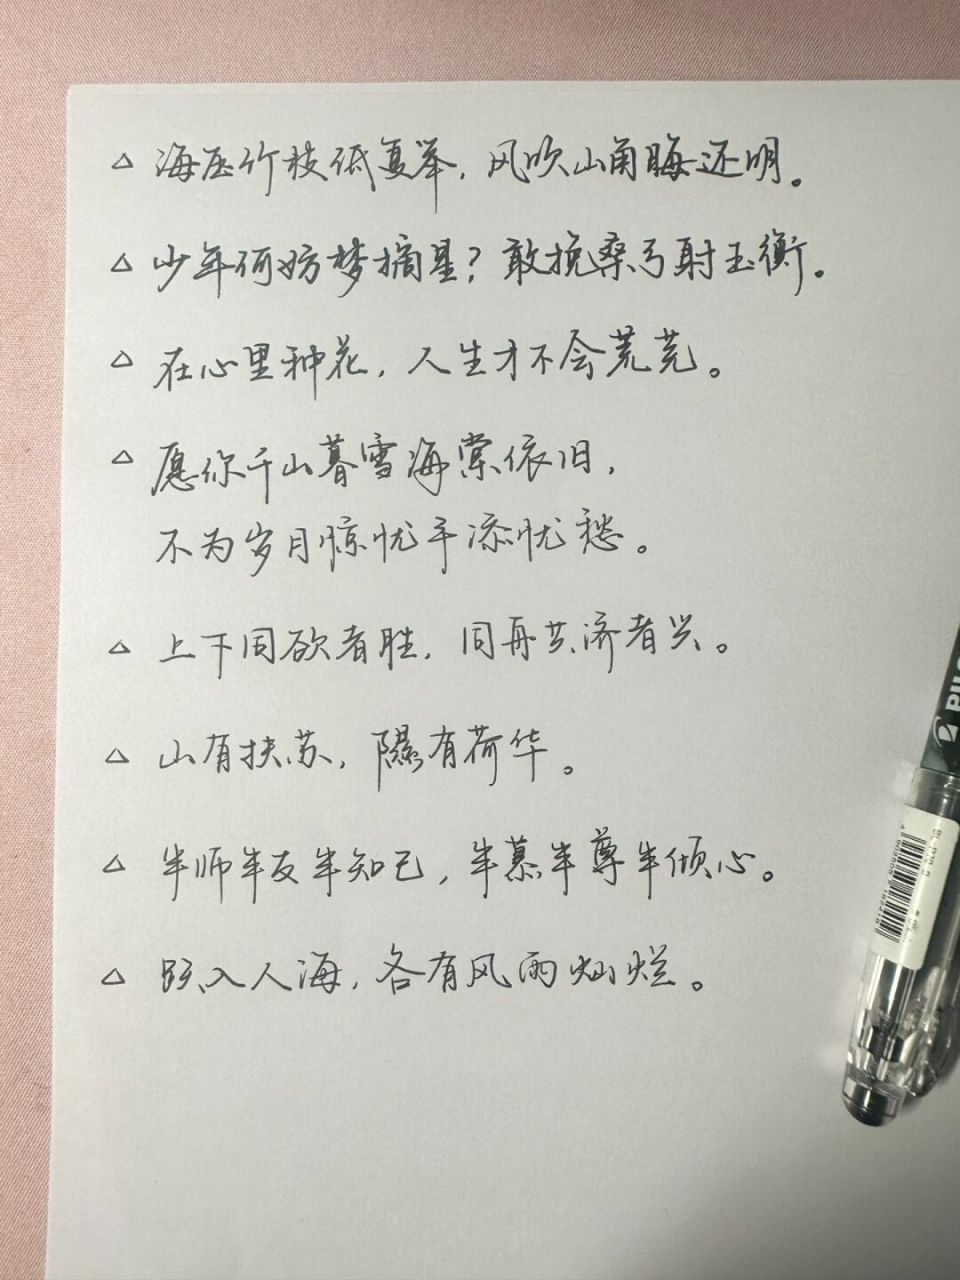 △ 海压竹枝低复举，风吹山角晦还明。
△ 少年何妨梦摘星？敢挽桑弓射玉衡。
△ 在心里种花，人生才不会荒芜。
△ 愿你千山暮雪海棠依旧，
不为岁月惊忧平添忧愁。
△ 上下同欲者胜，同舟共济者兴。
△ 山有扶苏，隰有荷华。
△ 半师半友半知己，半慕半尊半倾心。
△ 跃入人海，各有风雨灿烂。